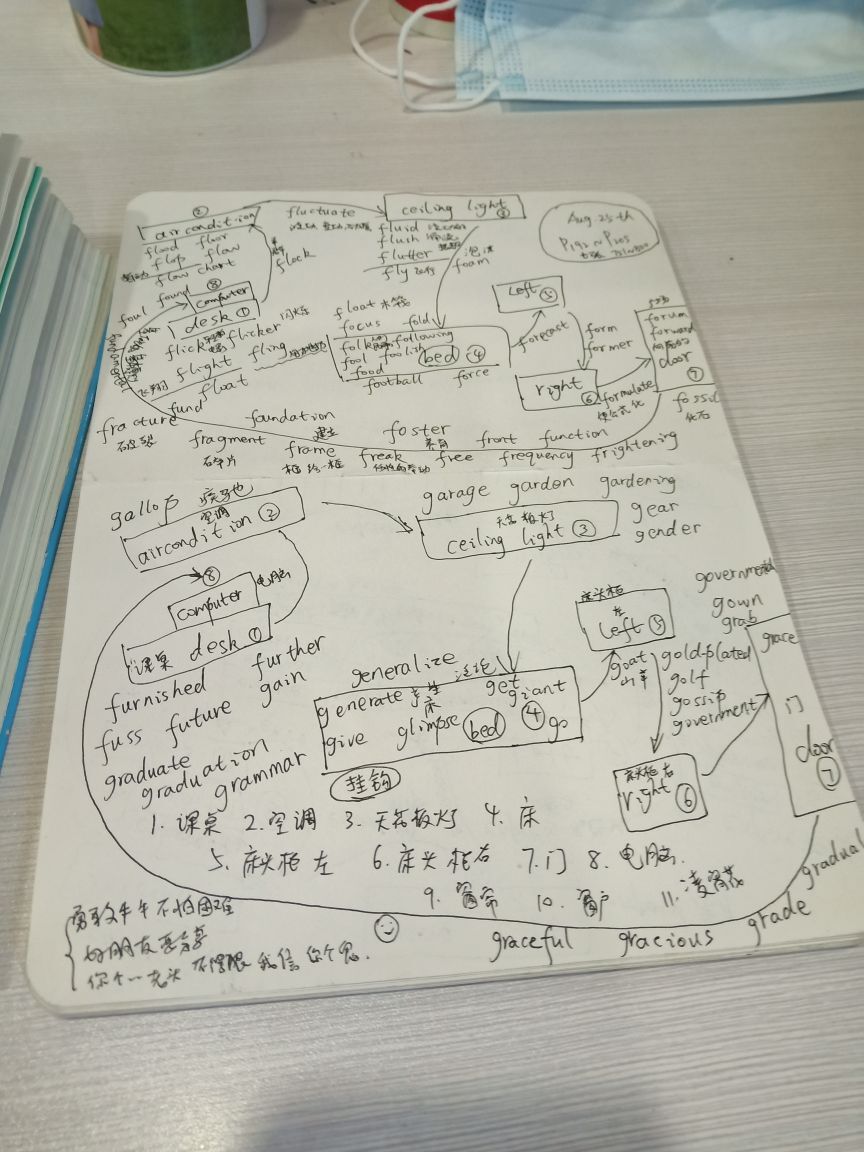 ②
aircondition
flood floor
flop flaw
flow chart
fluctuate
ceiling light ③
fluid
flush
flutter
fly
flock
泡沫
foam
Aug. 25th
P192~P205
foul found
⑧
computer
desk ①
flick flicker 闪烁
flight fling
float
fund
float 木筏
focus fold
folk following
fool foolish
food bed ④
football force
Left ⑤
forecast
form
former
right ⑥
formulate
forum
forward
door
⑦
fossil
化石
fracture foundation foster
fragment frame freak free front function
碎片 frequency frightening
gallop
空调
aircondition ②
garage garden gardening
天花板灯
ceiling light ③
gear
gender
⑧
computer 电脑
课桌 desk ①
furnished further
fuss future gain
graduate
graduation
grammar
generalize 泛论
generate 产生 get giant
床
give glimpse bed ④ go
床头柜
左
Left ⑤
goat
山羊
gold-plated
golf
gossip
government
床头柜右
right ⑥
government
gown
grab
grace
门
door
⑦
挂钩
1. 课桌 2. 空调 3. 天花板灯 4. 床
5. 床头柜 左 6. 床头柜右 7. 门 8. 电脑
9. 窗帘 10. 窗户 11.
gradual
grade
graceful gracious
勇敢牛牛不怕困难
好朋友
你个 我信你个鬼.